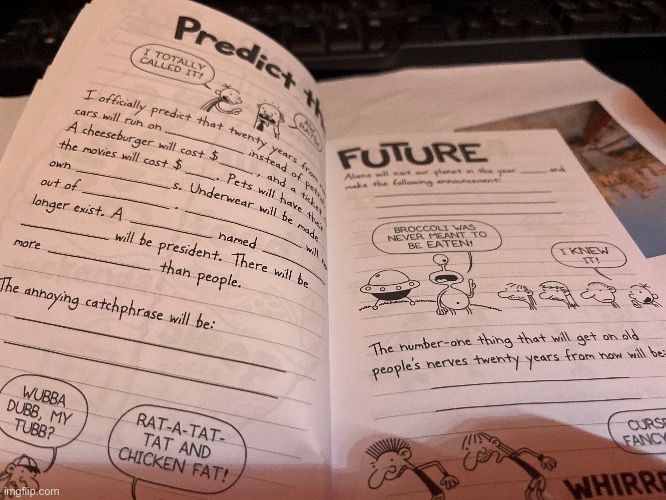 Predict th
I TOTALLY
CALLED IT!
I officially predict that twenty years from
cars will run on ______ instead of petrol
A cheeseburger will cost $____, and a ticket
the movies will cost $____. Pets will have their
own ______s. Underwear will be made
out of ______.
longer exist. A ______ named ______ will
______ will be president. There will be
more ______ than people.
The annoying catchphrase will be:
WUBBA
DUBB, MY
TUBB?
RAT-A-TAT-
TAT AND
CHICKEN FAT!
FUTURE
Aliens will visit our planet in the year ____ and
make the following announcement:
BROCCOLI WAS
NEVER MEANT TO
BE EATEN!
I KNEW
IT!
The number-one thing that will get on old
people's nerves twenty years from now will be:
CURSE
FANCY
WHIRR
imgflip.com